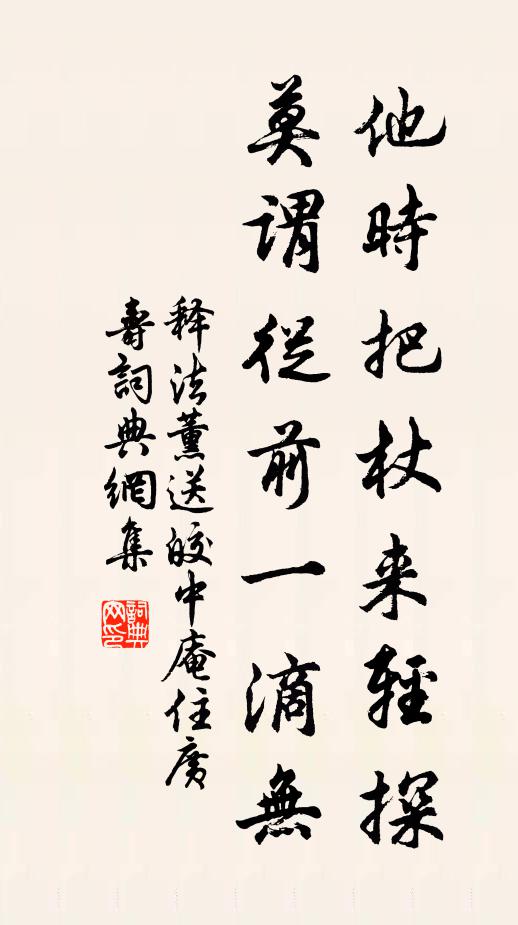 他時把杖来輕探
莫謂從前一滴無
释法薰送皎中庵住廣
壽詞典網集
詞典网印